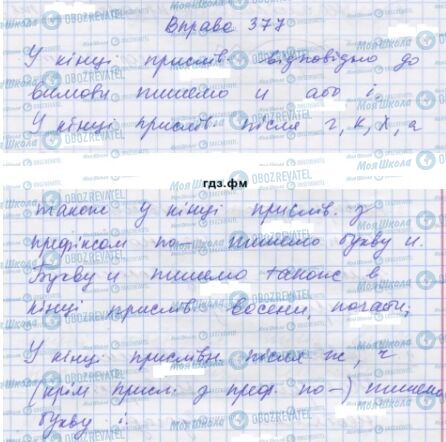 Вправа 377
У кінці прислів. відповідно до
вимови пишемо и або і.
У кінці прислів. після г, к, х, а
гдз.фм
також у кінці прислів. з
префіксом по- пишемо букву и.
Букву и пишемо також в
кінці прислів. восени, почасти;
У кінці прислівн. після ж, ч
(крім присл. з преф. по-) пишемо
букву і.